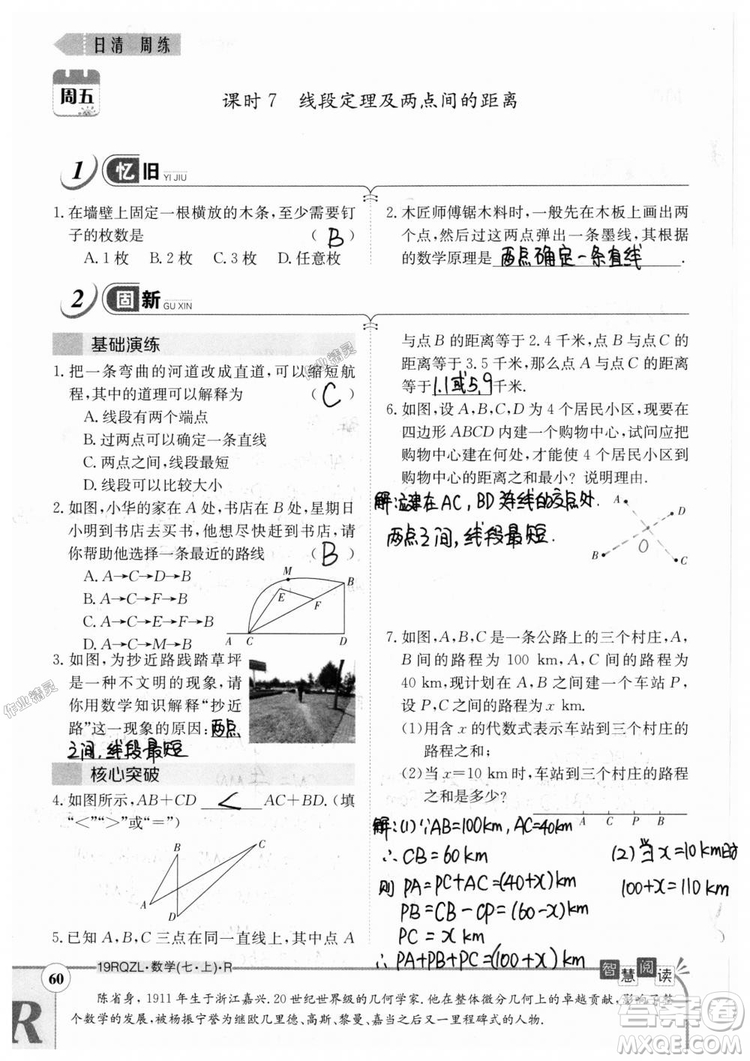 日清 周练
周五
课时 7 线段定理及两点间的距离
1 忆 旧 YI JIU
1. 在墙壁上固定一根横放的木条,至少需要钉
子的枚数是 ( B )
A. 1 枚 B. 2 枚 C. 3 枚 D. 任意枚
2. 木匠师傅锯木料时,一般先在木板上画出两
个点,然后过这两点弹出一条墨线,其根据
的数学原理是 两点确定一条直线
2 固 新 GU XIN
基础演练
1. 把一条弯曲的河道改成直道,可以缩短航
程,其中的道理可以解释为 ( C )
A. 线段有两个端点
B. 过两点可以确定一条直线
C. 两点之间,线段最短
D. 线段可以比较大小
2. 如图,小华的家在 A 处,书店在 B 处,星期日
小明到书店去买书,他想尽快赶到书店,请
你帮助他选择一条最近的路线 ( B )
A. A→C→D→B
B. A→C→F→B
C. A→C→E→F→B
D. A→C→M→B
M
B
E
F
A C D
3. 如图,为抄近路践踏草坪
是一种不文明的现象,请
你用数学知识解释“抄近
路”这一现象的原因:两点
之间,线段最短
核心突破
4. 如图所示,AB+CD < AC+BD. (填
“<”“>”或“=”)
B
C
A
D
5. 已知 A,B,C 三点在同一直线上,其中点 A
与点 B 的距离等于 2.4 千米,点 B 与点 C 的
距离等于 3.5 千米,那么点 A 与点 C 的距离
等于 1.1或5.9 千米.
6. 如图,设 A,B,C,D 为 4 个居民小区,现要在
四边形 ABCD 内建一个购物中心,试问应把
购物中心建在何处,才能使 4 个居民小区到
购物中心的距离之和最小? 说明理由.
解:应建在AC,BD连线的交点处.
两点之间,线段最短.
A
D
O
B
C
7. 如图,A,B,C 是一条公路上的三个村庄,A,B
间的路程为 100 km,A,C 间的路程为
40 km,现计划在 A,B 之间建一个车站 P,
设P,C 之间的路程为 x km.
(1)用含 x 的代数式表示车站到三个村庄的
路程之和;
(2)当 x=10 km 时,车站到三个村庄的路程
之和是多少?
A C P B
解:(1)∵AB=100km,AC=40km
∴CB=60km
则 PA=PC+AC=(40+x)km
PB=CB-CP=(60-x)km
PC=xkm
∴PA+PB+PC=(100+x)km
(2)当x=10km时
100+x=110km
60
19RQZL·数学(七·上)·R
智慧阅读
陈省身,1911 年生于浙江嘉兴. 20 世纪世界级的几何学家. 他在整体微分几何上的卓越贡献,影响了整
个数学的发展,被杨振宁誉为继欧几里德、高斯、黎曼、嘉当之后又一里程碑式的人物.
R
作业精灵
作业精灵
答案圈
MXQE.COM